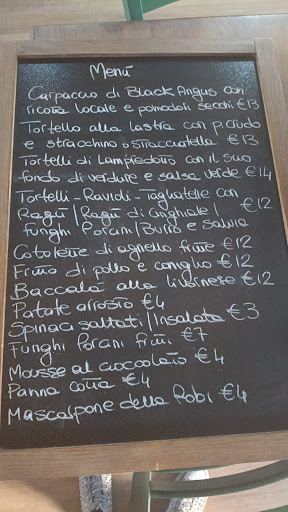 Menú
Carpaccio di Black Angus con
ricotta locale e pomodori secchi €13
Tortello alla lastra con prciudo
e stracchino o stracciatella €13
Tortelli di Lampredotto con il suo
fondo di verdure e salsa verde €14
Tortelli - Ravioli - Tagliatelle con
Ragù / Ragù di cinghiale / €12
Funghi Porcini / Burro e salvia
Cotolette di agnello fritte €12
Fritto di pollo e coniglio €12
Baccalà alla livornese €12
Patate arrosto €4
Spinaci saltati / Insalata €3
Funghi Porcini fritti €7
Mousse al cioccolato €4
Panna cotta €4
Mascarpone della Robi €4